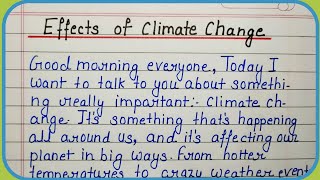 Effects of Climate Change
Good morning everyone, Today I
want to talk to you about somethi-
ng really important:- Climate ch-
ange. It's something that's happening
all around us, and it's affecting our
planet in big ways. From hotter
temperatures to crazy weather event